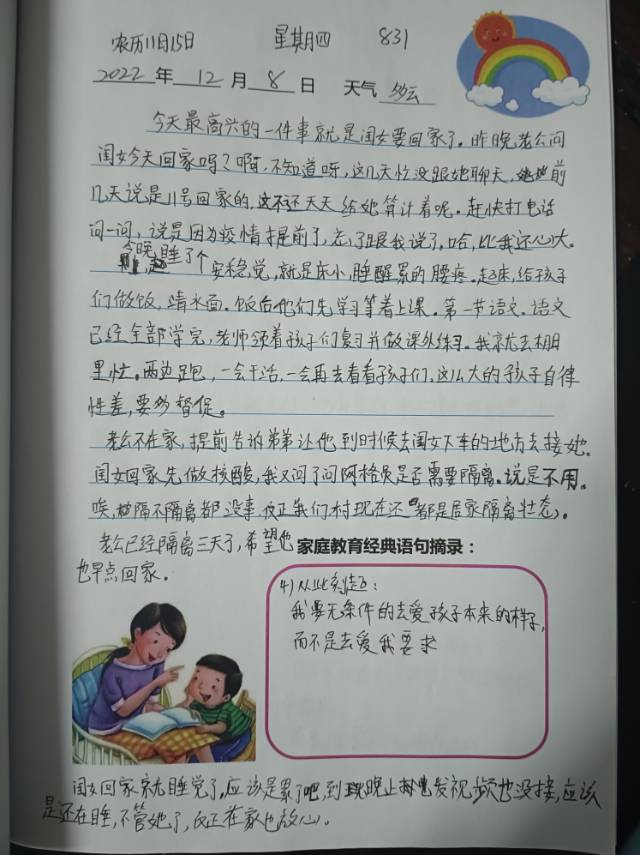 农历11月15日 星期四 831
2022年12月8日 天气 多云
今天最高兴的一件事就是闺女要回家了。昨晚老公问
闺女今天回家吗？啊，不知道呀，这几天忙没跟她聊天，前
几天说是11号回家的，这不还天天给她算计着呢。赶快打电话
问一问，说是因为疫情提前了，忘了跟我说了，哈，比我还心大。
今晚睡了个安稳觉，就是床小，睡醒累的腰疼。起床，给孩子
们做饭，清水面。饭后他们先学习等着上课。第一节语文，语文
已经全部学完，老师领着孩子们复习并做课外练习。我就去棚
里忙。两边跑，一会干活，一会再去看看孩子们，这么大的孩子自律
性差，要多督促。
老公不在家，提前告诉弟弟让他到时候去闺女下车的地方去接她。
闺女回家先做核酸，我又问了问网格员是否需要隔离。说是不用。
唉，隔不隔离都没事，反正我们村现在还都是居家隔离状态。
老公已经隔离三天了，希望他
也早点回家。
家庭教育经典语句摘录：
4）从此刻起：
我要无条件的去爱孩子本来的样子，
而不是去爱我要求
闺女回家就睡觉了，应该是累了吧，到晚上发视频也没接，应该
是还在睡，不管她了，反正在家也放心。